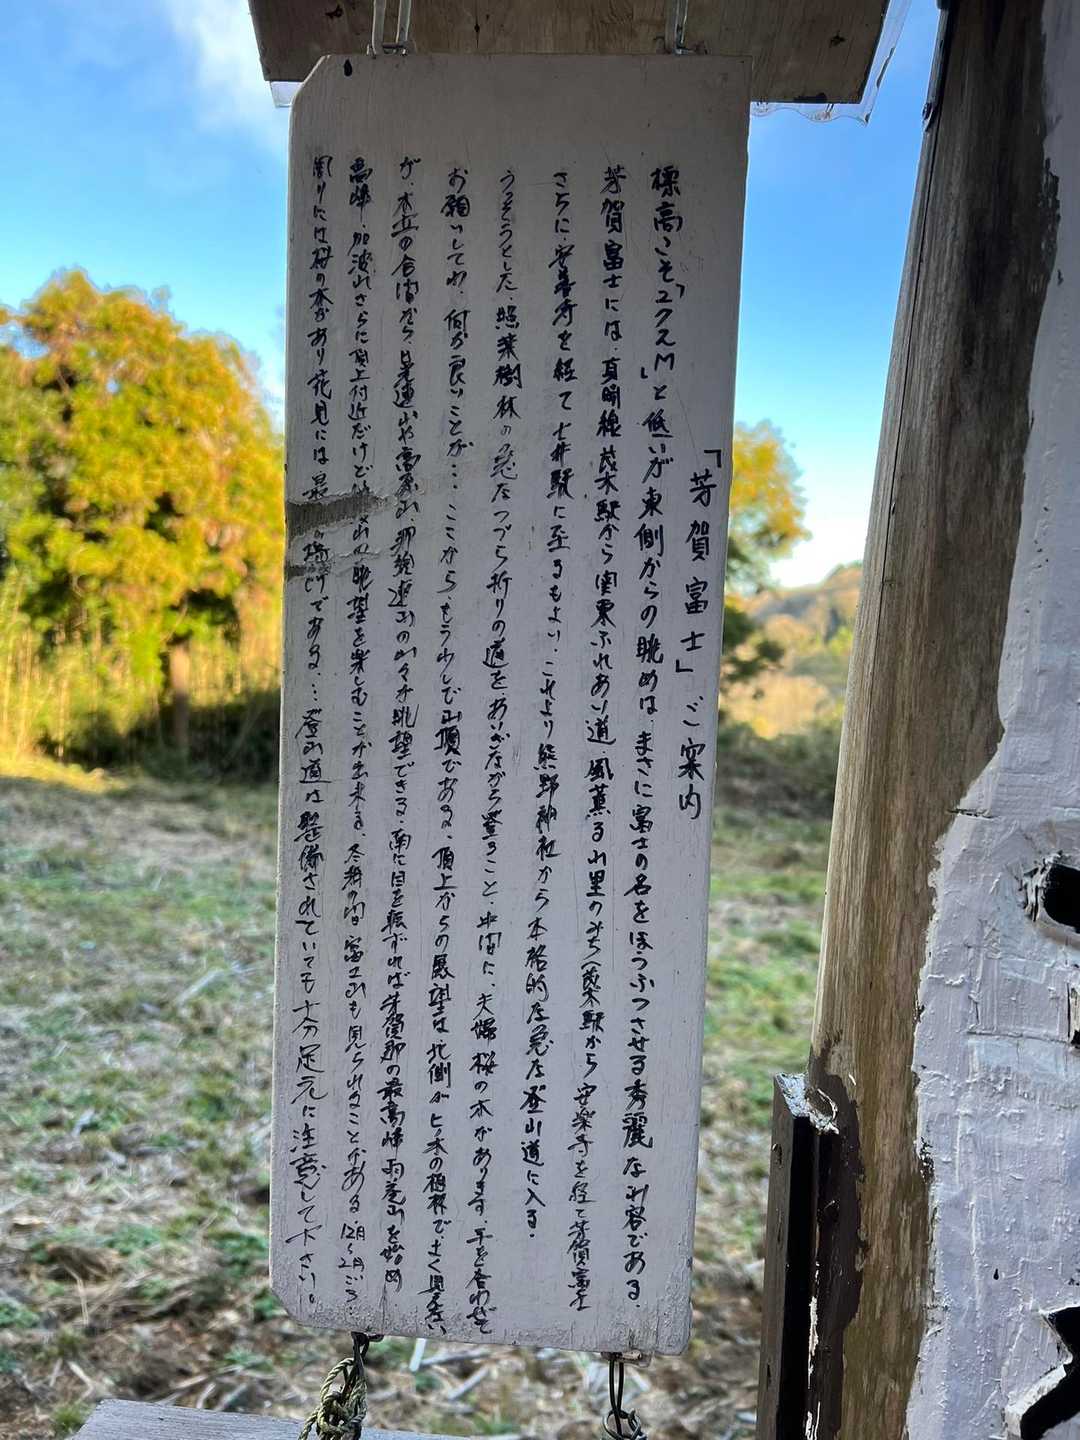 「芳賀富士」ご案内
標高こそ「272M」と低いが東側からの眺めは、まさに富士の名をほうふつさせる秀麗な山容である。
芳賀富士には、真岡線茂木駅から関東ふれあい道、風薫る山里のみち(茂木駅から安楽寺を経て芳賀富士
さらに、安善寺を経て七井駅に至るもよい、これより熊野神社から本格的な急な登山道に入る。
うっそうとした、照葉樹林の急なつづら折りの道を、あいぎながら登ること、中間に、夫婦桜の木があります、手を合わせて
お願いしてね、何か良いことが・・・ここからもう少しで山頂である、頂上からの展望は、北側がヒノキの植林でよく見えない
が、木立の合間から、日光連山や高原山、那須連山の山々が眺望できる、南に目を転ずれば芳賀郡の最高峰雨巻山を始め
高峰、加波山さらに頂上付近だけど 山の眺望を楽しむことが出来る、冬期の間富士山も見られることがある、12月〜2月ごろ・・
周りには桜の木があり花見には最 の場所である、・・・登山道は整備されていても十分足元に注意して下さい。